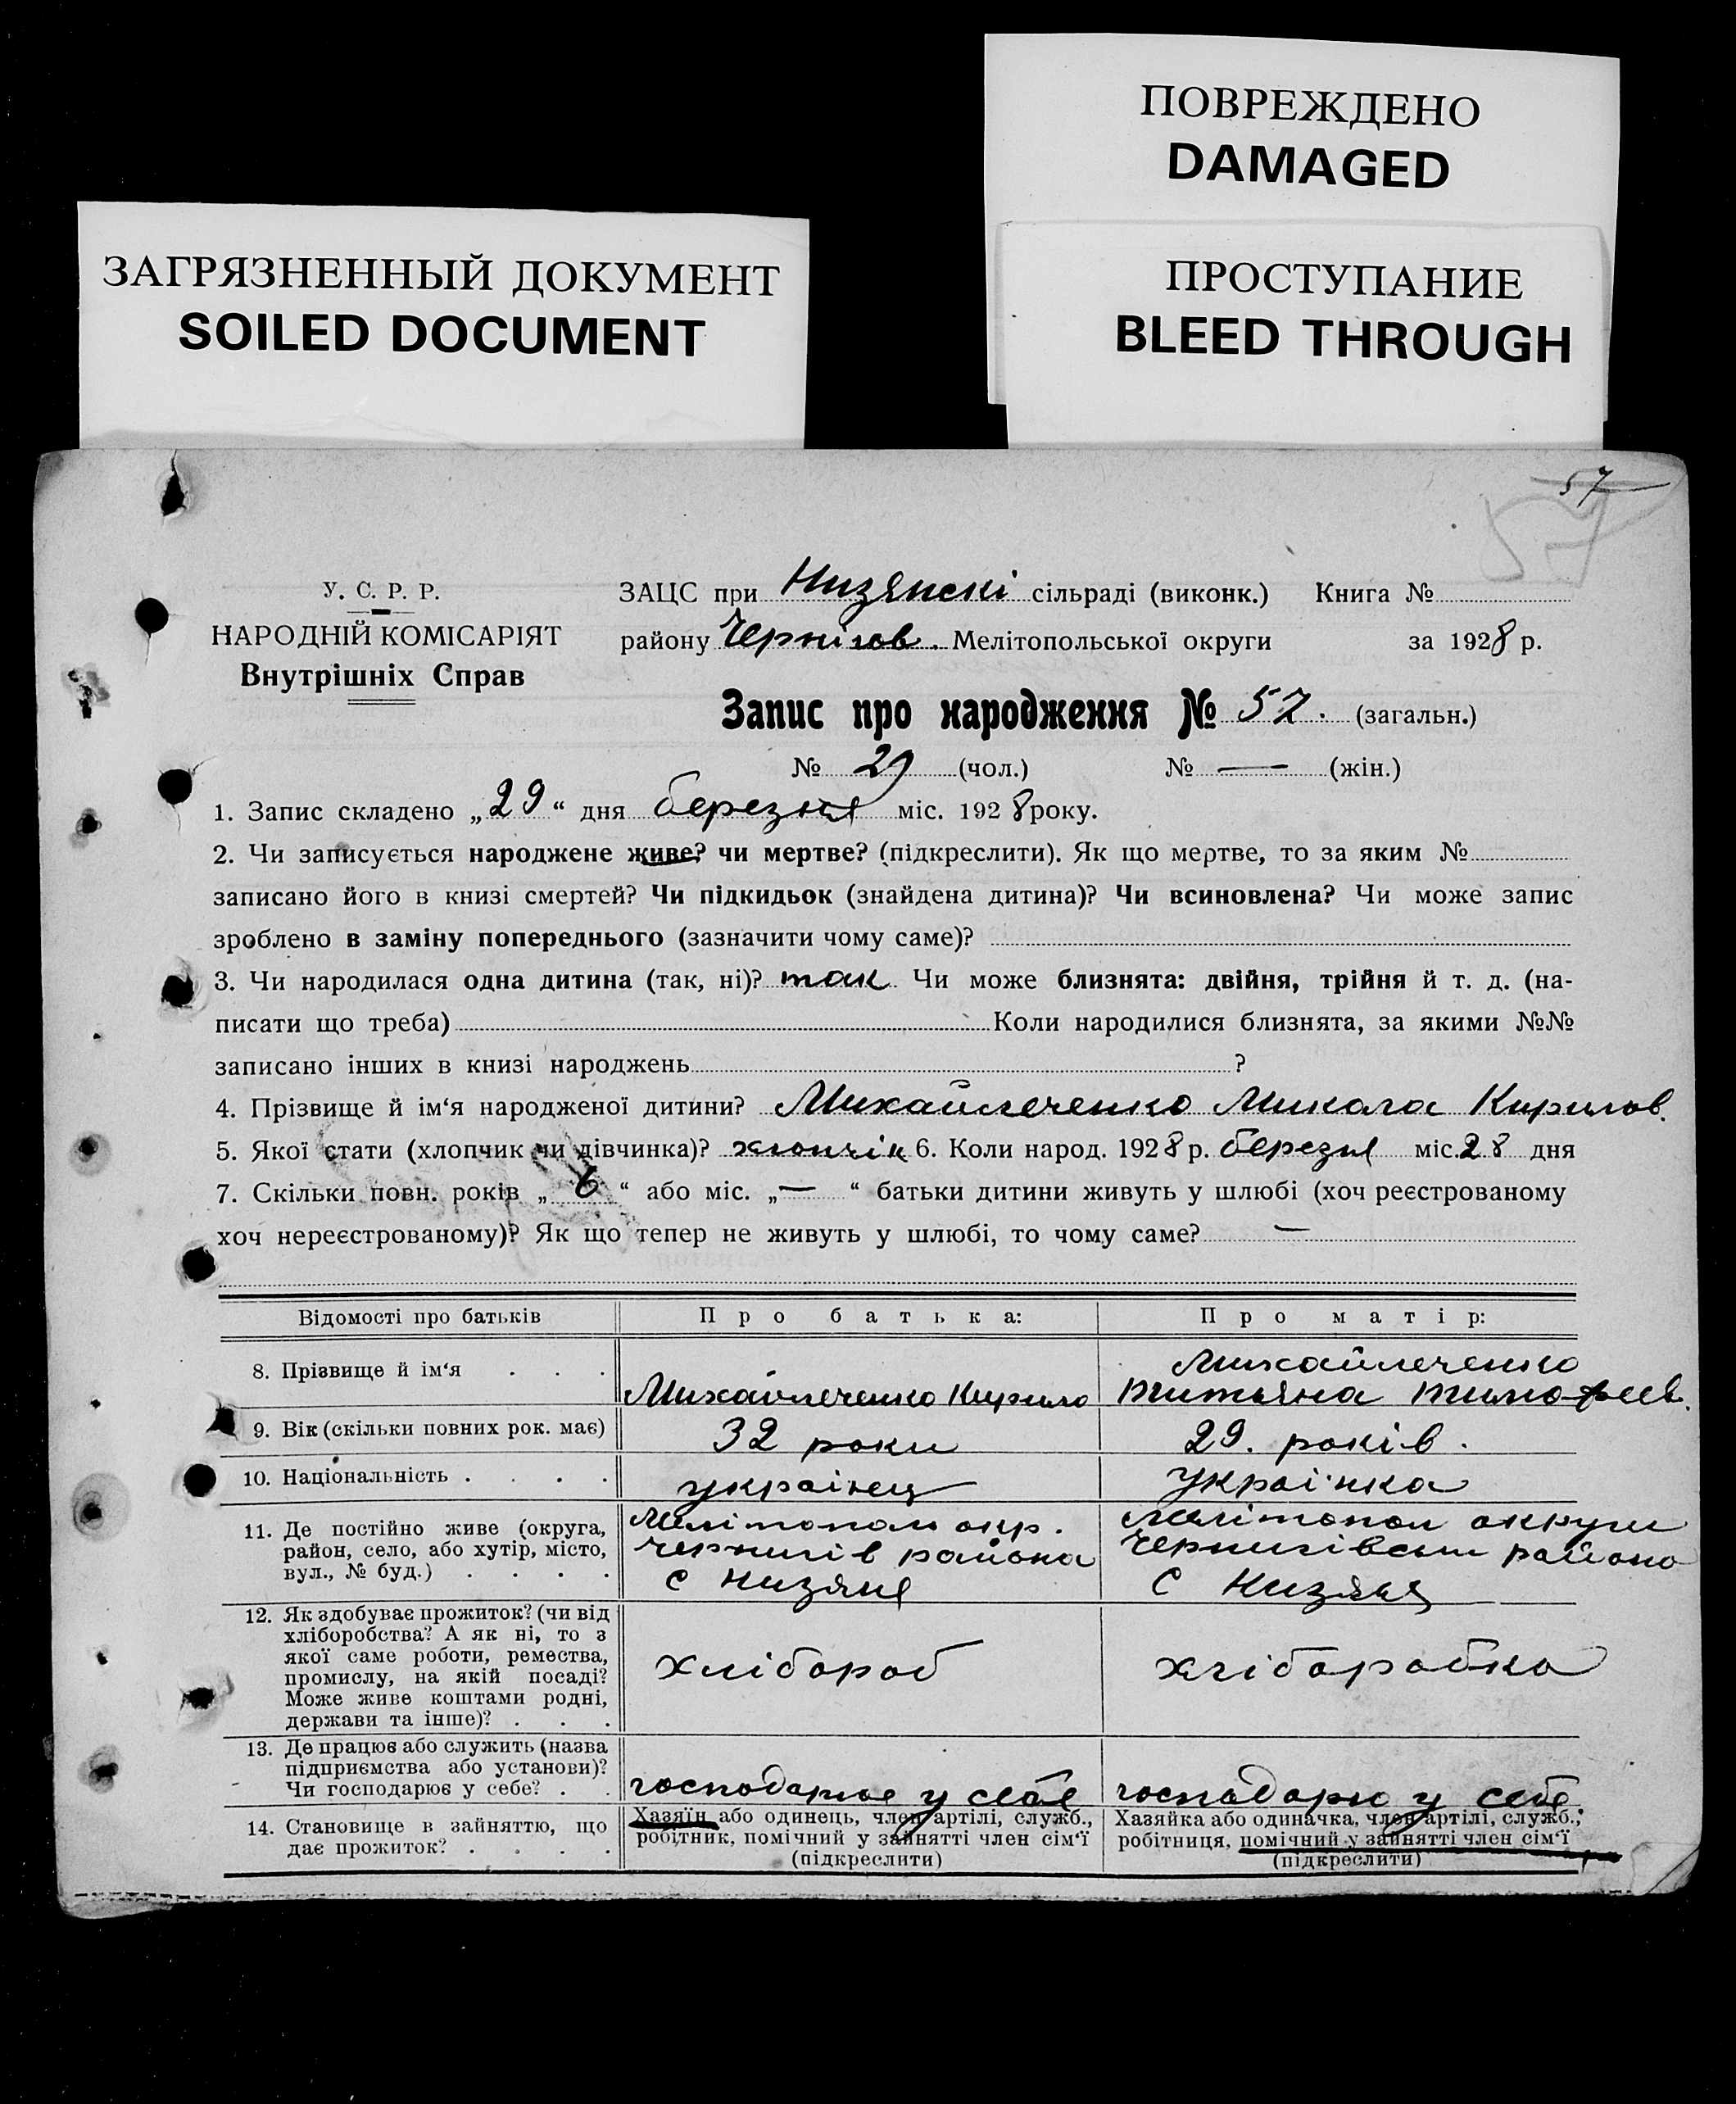 ПОВРЕЖДЕНО
DAMAGED
ЗАГРЯЗНЕННЫЙ ДОКУМЕНТ
SOILED DOCUMENT
ПРОСТУПАНИЕ
BLEED THROUGH
57
57
У. С. Р. Р.
НАРОДНІЙ КОМІСАРІЯТ
Внутрішніх Справ
ЗАЦС при Низянскі сільраді (виконк.) Книга №
району Чернігов. Мелітопольської округи за 1928 р.
Запис про народження № 57. (загальн.)
№ 29 (чол.) № — (жін.)
1. Запис складено „29“ дня березня міс. 1928 року.
2. Чи записується народжене живе? чи мертве? (підкреслити). Як що мертве, то за яким №
записано його в книзі смертей? Чи підкидьок (знайдена дитина)? Чи всиновлена? Чи може запис
зроблено в заміну попереднього (зазначити чому саме)?
3. Чи народилася одна дитина (так, ні)? так Чи може близнята: двійня, трійня й т. д. (на-
писати що треба) Коли народилися близнята, за якими №№
записано інших в книзі народжень ?
4. Прізвище й ім‘я народженої дитини? Михайлеченко Микола Кирилов.
5. Якої стати (хлопчик чи дівчинка)? хлопчік 6. Коли народ. 1928 р. березня міс. 28 дня
7. Скільки повн. років „6“ або міс. „—“ батьки дитини живуть у шлюбі (хоч реєстрованому
хоч нереєстрованому)? Як що тепер не живуть у шлюбі, то чому саме? —
Відомості про батьків Про батька: Про матір:
8. Прізвище й ім‘я . . .
Михайлеченко Кирило
Михайлеченко
Титьяна Тимофеев.
9. Вік (скільки повних рок. має)
32 роки
29. років.
10. Національність . . . .
українец
українка
11. Де постійно живе (округа,
район, село, або хутір, місто,
вул., № буд.) . . . .
Мелітополь окр.
Чернигів района
с Низяня
Мелітопол округи
Чернигівськи района
с Низяня
12. Як здобуває прожиток? (чи від
хліборобства? А як ні, то з
якої саме роботи, ремества,
промислу, на якій посаді?
Може живе коштами родні,
держави та інше)? . . .
хлібороб
хліборобка
13. Де працює або служить (назва
підприємства або установи)?
Чи господарює у себе? . .
господарює у себе
господарю у себе
14. Становище в зайняттю, що
дає прожиток? . . . .
Хазяїн або одинець, член артілі, служб.,
робітник, помічний у зайнятті член сім‘ї
(підкреслити)
Хазяйка або одиначка, член артілі, служб.,
робітниця, помічний у зайнятті член сім‘ї
(підкреслити)